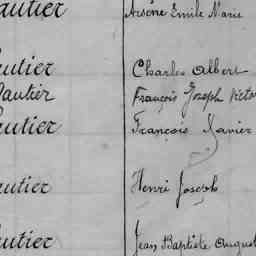 autier Arsène Emile Marie
autier Charles Albert
autier François Joseph Victo
autier François Xavier
autier Henri Joseph
autier Jean Baptiste August